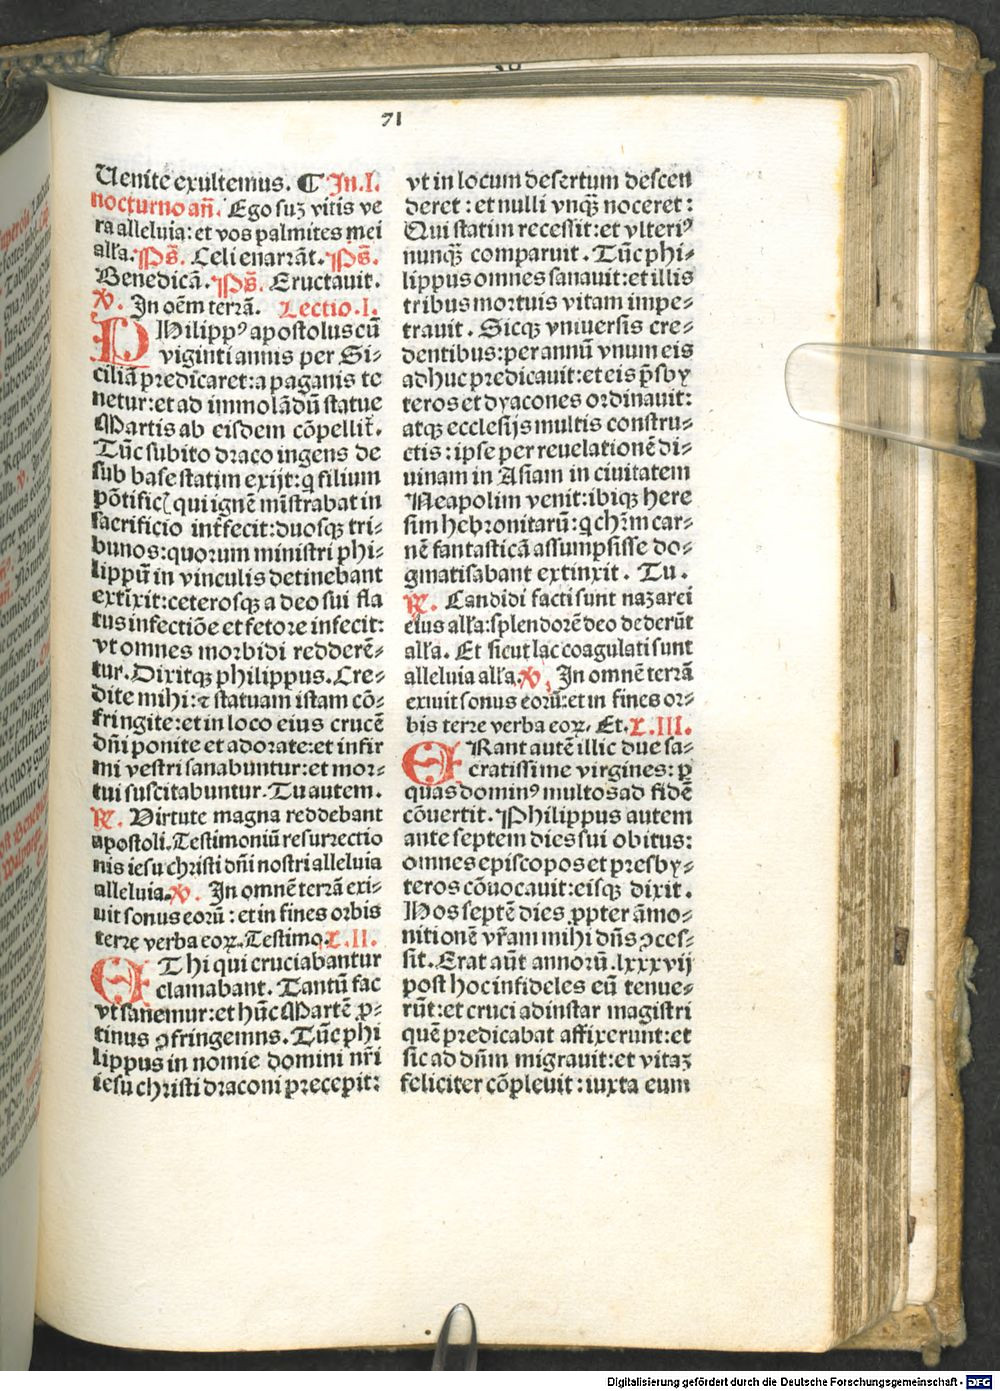 71
Uenite exultemus. ¶ In.I.
nocturno añ. Ego suꝫ vitis ve
ra alleluia: et vos palmites mei
alľa. Ps̄. Celi enarrāt. Ps̄.
Benedicā. Ps̄. Eructauit.
℣. In oēm terrā. Lectio.I.
PHilippꝰ apostolus cū
viginti annis per Si⸗
ciliā predicaret: a paganis te
netur: et ad immolādū statue
Martis ab eisdem cōpellit᷑.
Tūc subito draco ingens de
sub base statim exijt: q̄ filium
pōtificꝭ qui ignē mīstrabat in
sacrificio int̄fecit: duosqꝫ tri⸗
bunos: quorum ministri phi⸗
lippū in vinculis detinebant
extīxit: ceterosqꝫ adeo sui fla
tus infectiōe et fetore infecit:
vt omnes morbidi redderē⸗
tur. Dixitqꝫ philippus. Cre⸗
dite mihi: ⁊ statuam istam cō⸗
fringite: et in loco eius crucē
dn̄i ponite et adorate: et infir
mi vestri sanabuntur: et mor⸗
tui suscitabuntur. Tu autem.
℟. Virtute magna reddebant
apostoli. Testimoniū resurrectio
nis iesu christi dn̄i nostri alleluia
alleluia. ℣. In omnē terrā exi⸗
uit sonus eorū: et in fines orbis
terre verba eoꝝ. Testimo. L.II.
EThi qui cruciabantur
clamabant. Tantū fac
vt sanemur: et hūc Martē ꝓ⸗
tinus ꝯfringemns. Tūc phi
lippus in nomie domini nr̄i
iesu christi draconi precepit:
vt in locum desertum descen
deret: et nulli vnqꝫ noceret:
Qui statim recessit: et vlteriꝰ
nunqꝫ comparuit. Tūc phi⸗
lippus omnes sanauit: et illis
tribus mortuis vitam impe⸗
trauit. Sicqꝫ vniuersis cre⸗
dentibus: per annū vnum eis
adhuc predicauit: et eis p̄sby
teros et dyacones ordinauit:
atqꝫ ecclesijs multis constru⸗
ctis: ipse per reuelationē di⸗
uinam in Asiam in ciuitatem
Neapolim venit: ibiqꝫ here
sim hebronitarū: q̄ chr̄m car⸗
nē fantasticā assumpsisse do⸗
gmatisabant extinxit. Tu.
℟. Candidi facti sunt nazarei
eius alľa: splendorē deo dederūt
alľa. Et sicut lac coagulati sunt
alleluia alľa. ℣. In omnē terrā
exiuit sonus eorū: et in fines or⸗
bis terre verba eoꝝ. Et. L.III.
ERant autē illic due sa⸗
cratissime virgines: ꝑ
quas dominꝰ multos ad fidē
cōuertit. Philippus autem
ante septem dies sui obitus:
omnes episcopos et presby⸗
teros cōuocauit: eisqꝫ dixit.
Hos septē dies ꝓpter āmo⸗
nitionē vr̄am mihi dn̄s ꝯces⸗
sit. Erat aūt annorū .lxxxvij
post hoc infideles eū tenue⸗
rūt: et cruci adinstar magistri
quē predicabat affixerunt: et
sic ad dn̄m migrauit: et vitaꝫ
feliciter cōpleuit: iuxta eum
Digitalisierung gefördert durch die Deutsche Forschungsgemeinschaft - DFG